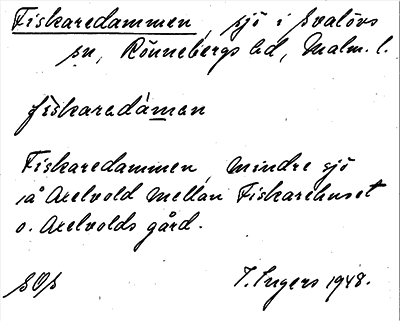 Fiskaredammen, sjö i Svalövs
sn, Rönnebergs hd, Malm. l.
fiskaredàmen
Fiskaredammen, mindre sjö
på Axelvold mellan Fiskarehuset
o. Axelvolds gård.
SOS
I. Ingers 1948.